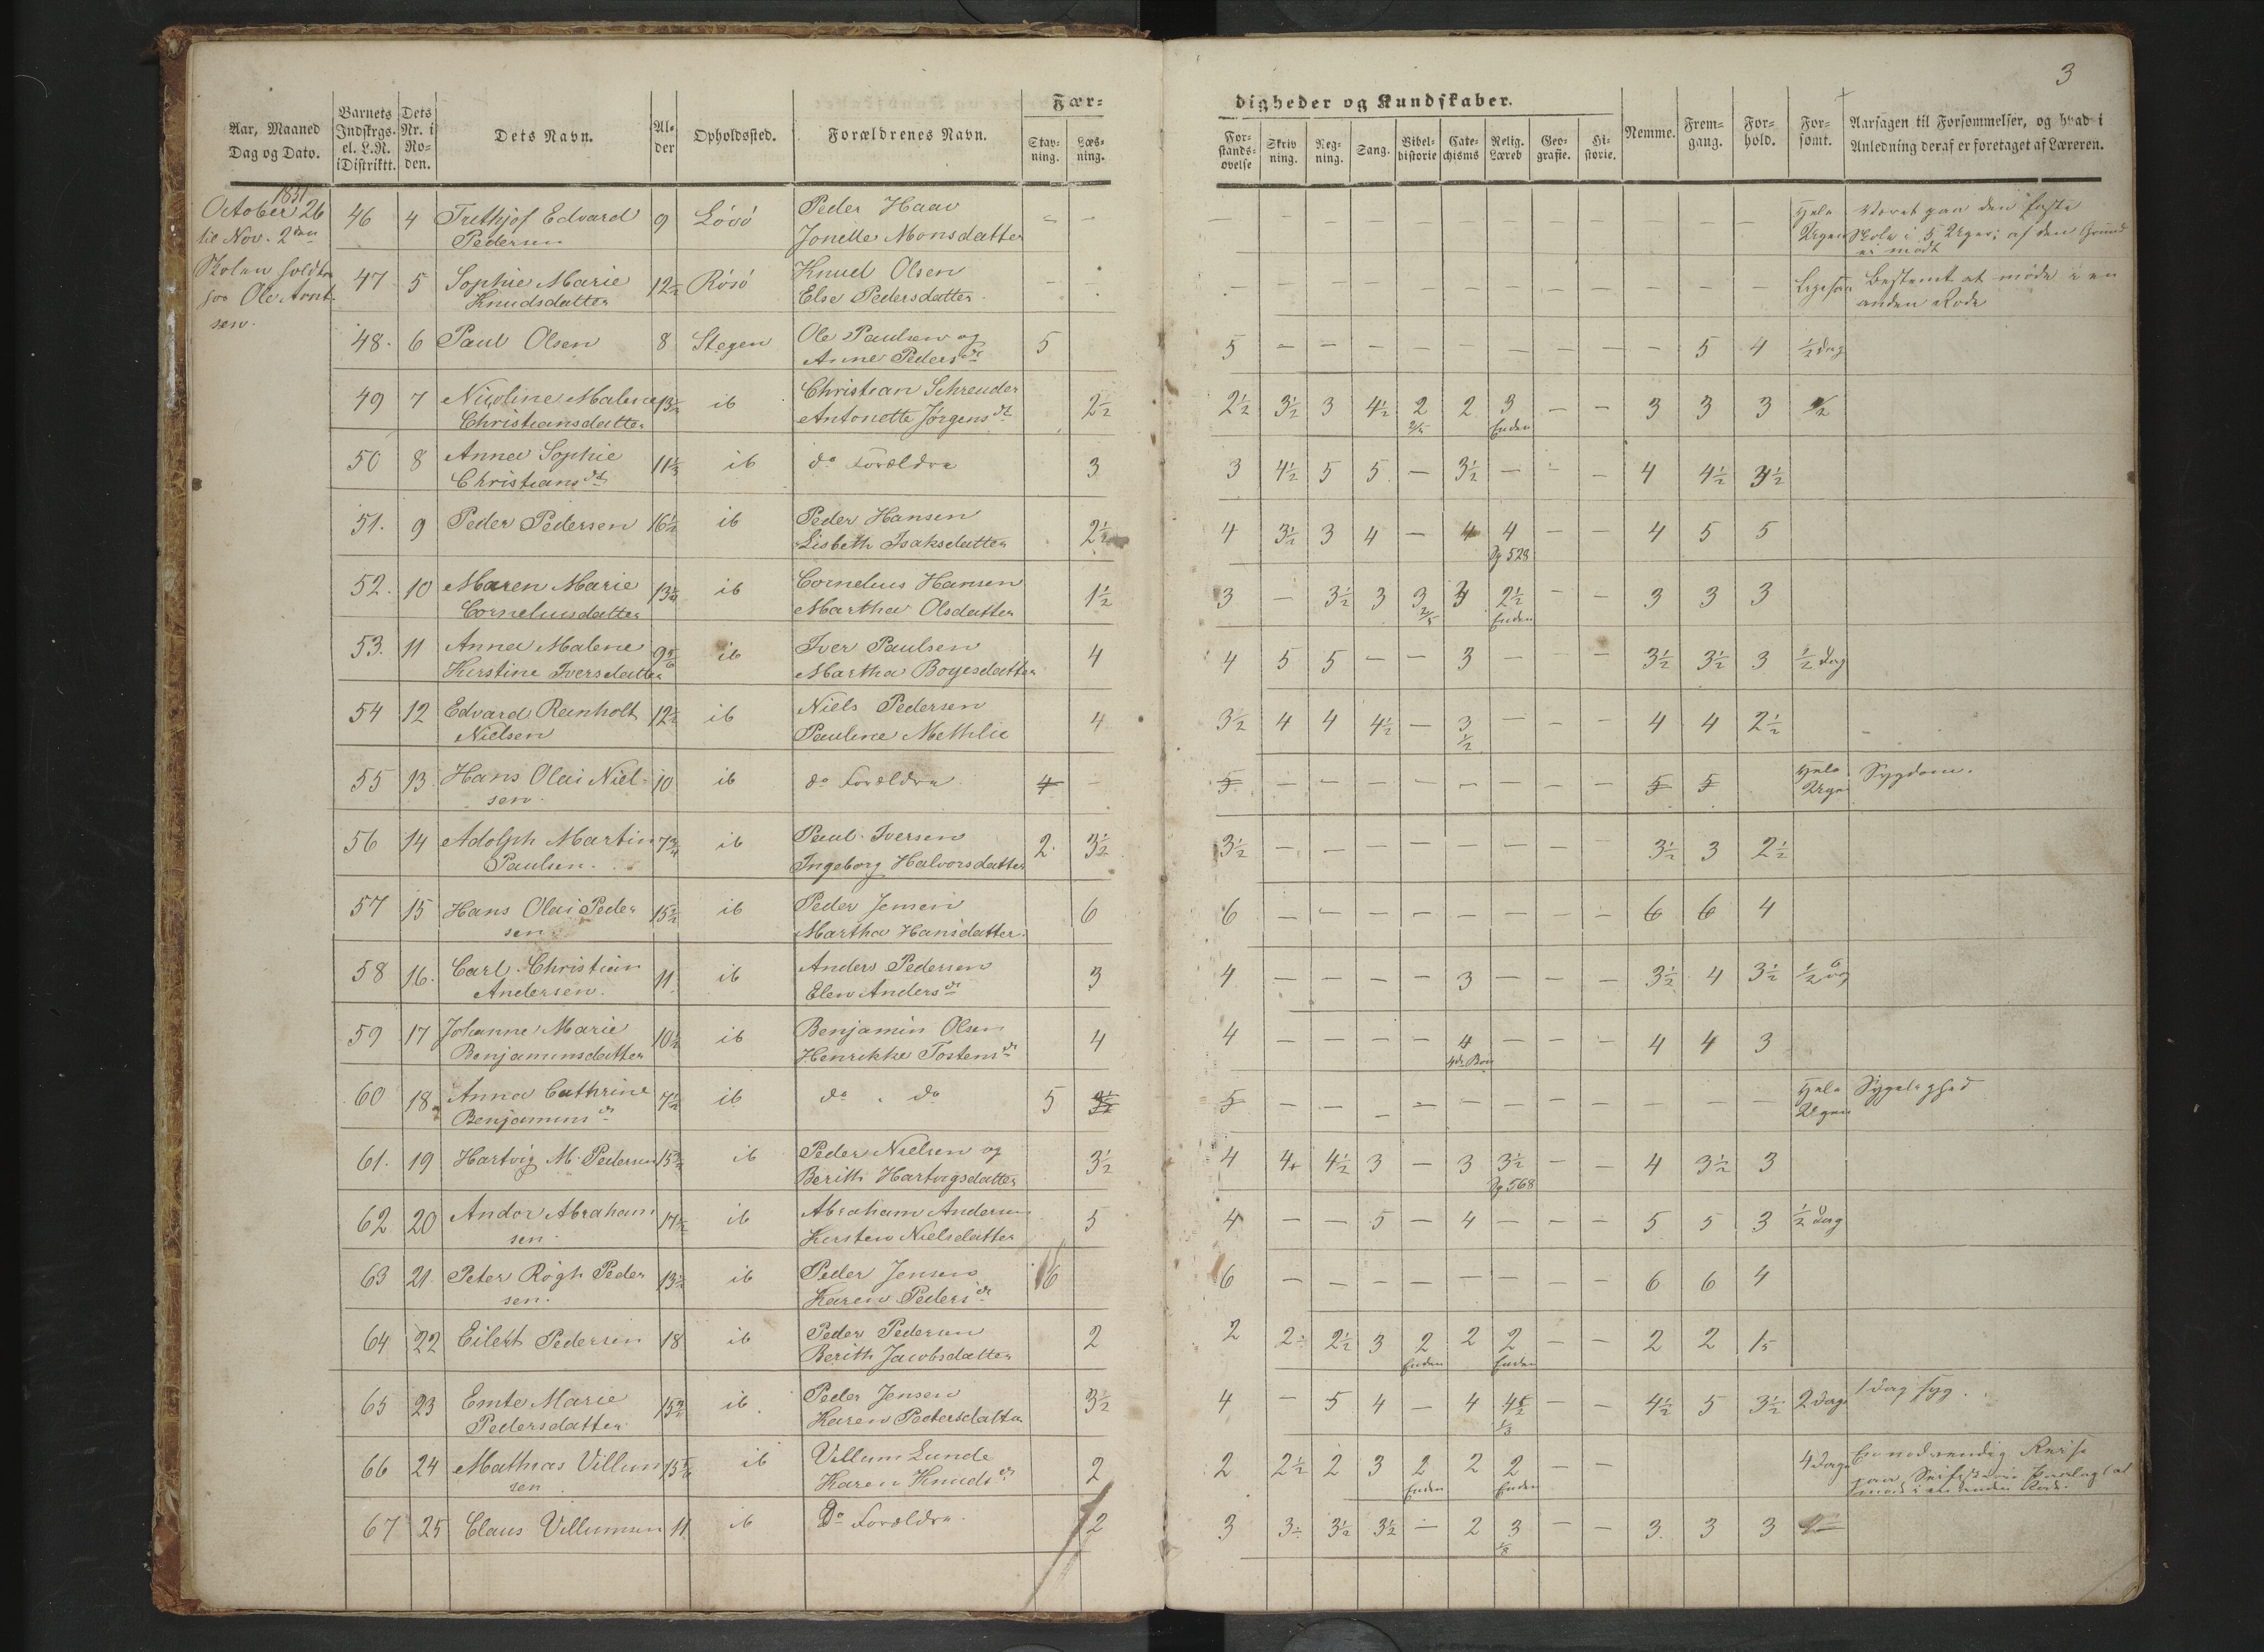 3
Fær-
digheder og Kundskaber.
Aar, Maaned Dag og Dato.
Barnets Indskrgs. el. L.R. i Distriktt.
Dets Nr. i Roden.
Dets Navn.
Alder
Opholdssted.
Forældrenes Navn.
Stavning.
Læsning.
Forstandsøvelse
Skrivning.
Regning.
Sang.
Bibelhistorie
Catechisms
Relig. Læreb
Geografie.
Historie.
Nemme.
Fremgang.
Forhold.
Forsømt.
Aarsagen til Forsømmelser, og hvad i Anledning deraf er foretaget af Læreren.
1851
October 26
til Nov. 2den
Skolen holdt
hos Ole Arnt
sen.
46 4 Frithjof Edvard 9 Løvø Peder Haav – – – – – – – – – – – – – – Hele
Pedersen Jonette Monsdatter Ugen
47 5 Sophie Marie 12½ Rösö Knud Olsen – – – – – – – – – – – – – – Ligesaa Bestemt at møde i en
Knudsdatter Else Pedersdatter anden Rode
48. 6 Paul Olsen 8 Stegen Ole Paulsen og 5 5 – – – – – – – – – 5 4 ½ dag
Anne Peders dr
49 7 Nicoline Malene 13½ ib Christian Schreuder 2½ 2½ 3½ 3 4½ 2 2 3 – – 3 3 3 ½
Christiansdatter Antonette Jørgens dt 2/5 Enden
50 8 Anna Sophie 11⅓ ib do Forældre 3 3 4½ 5 5 – 3½ – – – 4 4½ 3½
Christians dt
51. 9 Peder Pedersen 16½ ib Peder Hansen 2½ 4 3½ 3 4 – 4 4 – – 4 5 5
Lisbeth Isaksdatter Pg 528
52. 10 Maren Marie 13¾ ib Cornelius Hansen 1½ 3 – 3½ 3 3 3 2½ – – 3 3 3
Corneliusdatter Martha Olsdatter 2/5 Enden
53. 11 Anna Malene 9 5/6 ib Iver Paulsen 4 4 5 5 – – 3 – – – 3½ 3½ 3 ½ dag
Kirstine Iversdatter Martha Boyesdatter
54 12 Edvard Reinholt 12½ ib Niels Pedersen 4 3½ 4 4 4½ – 3½ – – – 4 4 2½
Nielsen Pauline Methlie
55 13 Hans Olai Niel- 10 ib do Forældre 4 – 5 – – – – – – – – 5 5 Hele Sygdom.
sen. Ugen
56 14 Adolph Martin 7¾ ib Paul Iversen 2 3½ 3½ – – – – – – – – 3½ 3 2½
Paulsen. Ingeborg Halvorsdatter
57 15 Hans Olai Peder 15½ ib Peder Jensen 6 6 – – – – – – – – 6 6 4
sen Martha Hansdatter
58 16. Carl Christian 11 ib Anders Pedersen 3 4 – – – – 3 – – – 3½ 4 3½ ½ dag
Andersen. Elen Anders dr
59 17 Johanne Marie 10½ ib Benjamin Olsen 4 4 – – – – 4 – – – 4 4 3
Benjaminsdatter Henrikke Tostens dr 4de Bøn
60 18 Anna Cathrine 7½ ib do do 5 5 – – – – – – – – – – – Hele Sygelighed
Benjamins dr Ugen
61. 19 Hartvig M. Pedersen 15¾ ib Peder Nielsen og 3½ 4 4+ 4½ 3 – 3 3½ – – 4 3½ 3
Berith Hartvigsdatter Pg 568
62 20 Andor Abraham 17½ ib Abraham Andersen 5 4 – – 5 – 4 – – – 5 5 3 ½ dag
sen Kirsten Nielsdatter
63 21 Peter Rögh Peder 13½ ib Peder Jensen 6 6 – – – – – – – – 6 6 4
sen. Karen Peders dr
64 22 Eilert Pedersen 18 ib Peder Pedersen 2 2 2÷ 2½ 3 2 2 2 – – 2 2 1,5
Berith Jacobsdatter Enden Enden
65 23 Emte Marie 15¾ ib Peder Jensen 3½ 4 – 5 4 – 4 4½ – – 4½ 5 3½ 2 dage 1 dag syg.
Pedersdatter Karen Pedersdatter ⅓
66 24 Mathias Villum ib Villum Lunde 2 2 2½ 2 3 2 2 2 – – 4 dage En nødvendig Reise
sen Karen Knuds dr Enden Enden
67 25 Claus Villumsen 11 ib Do Forældre. 2 3 3÷ 3½ 3½ – 2 3 – – 3 3 3
⅛